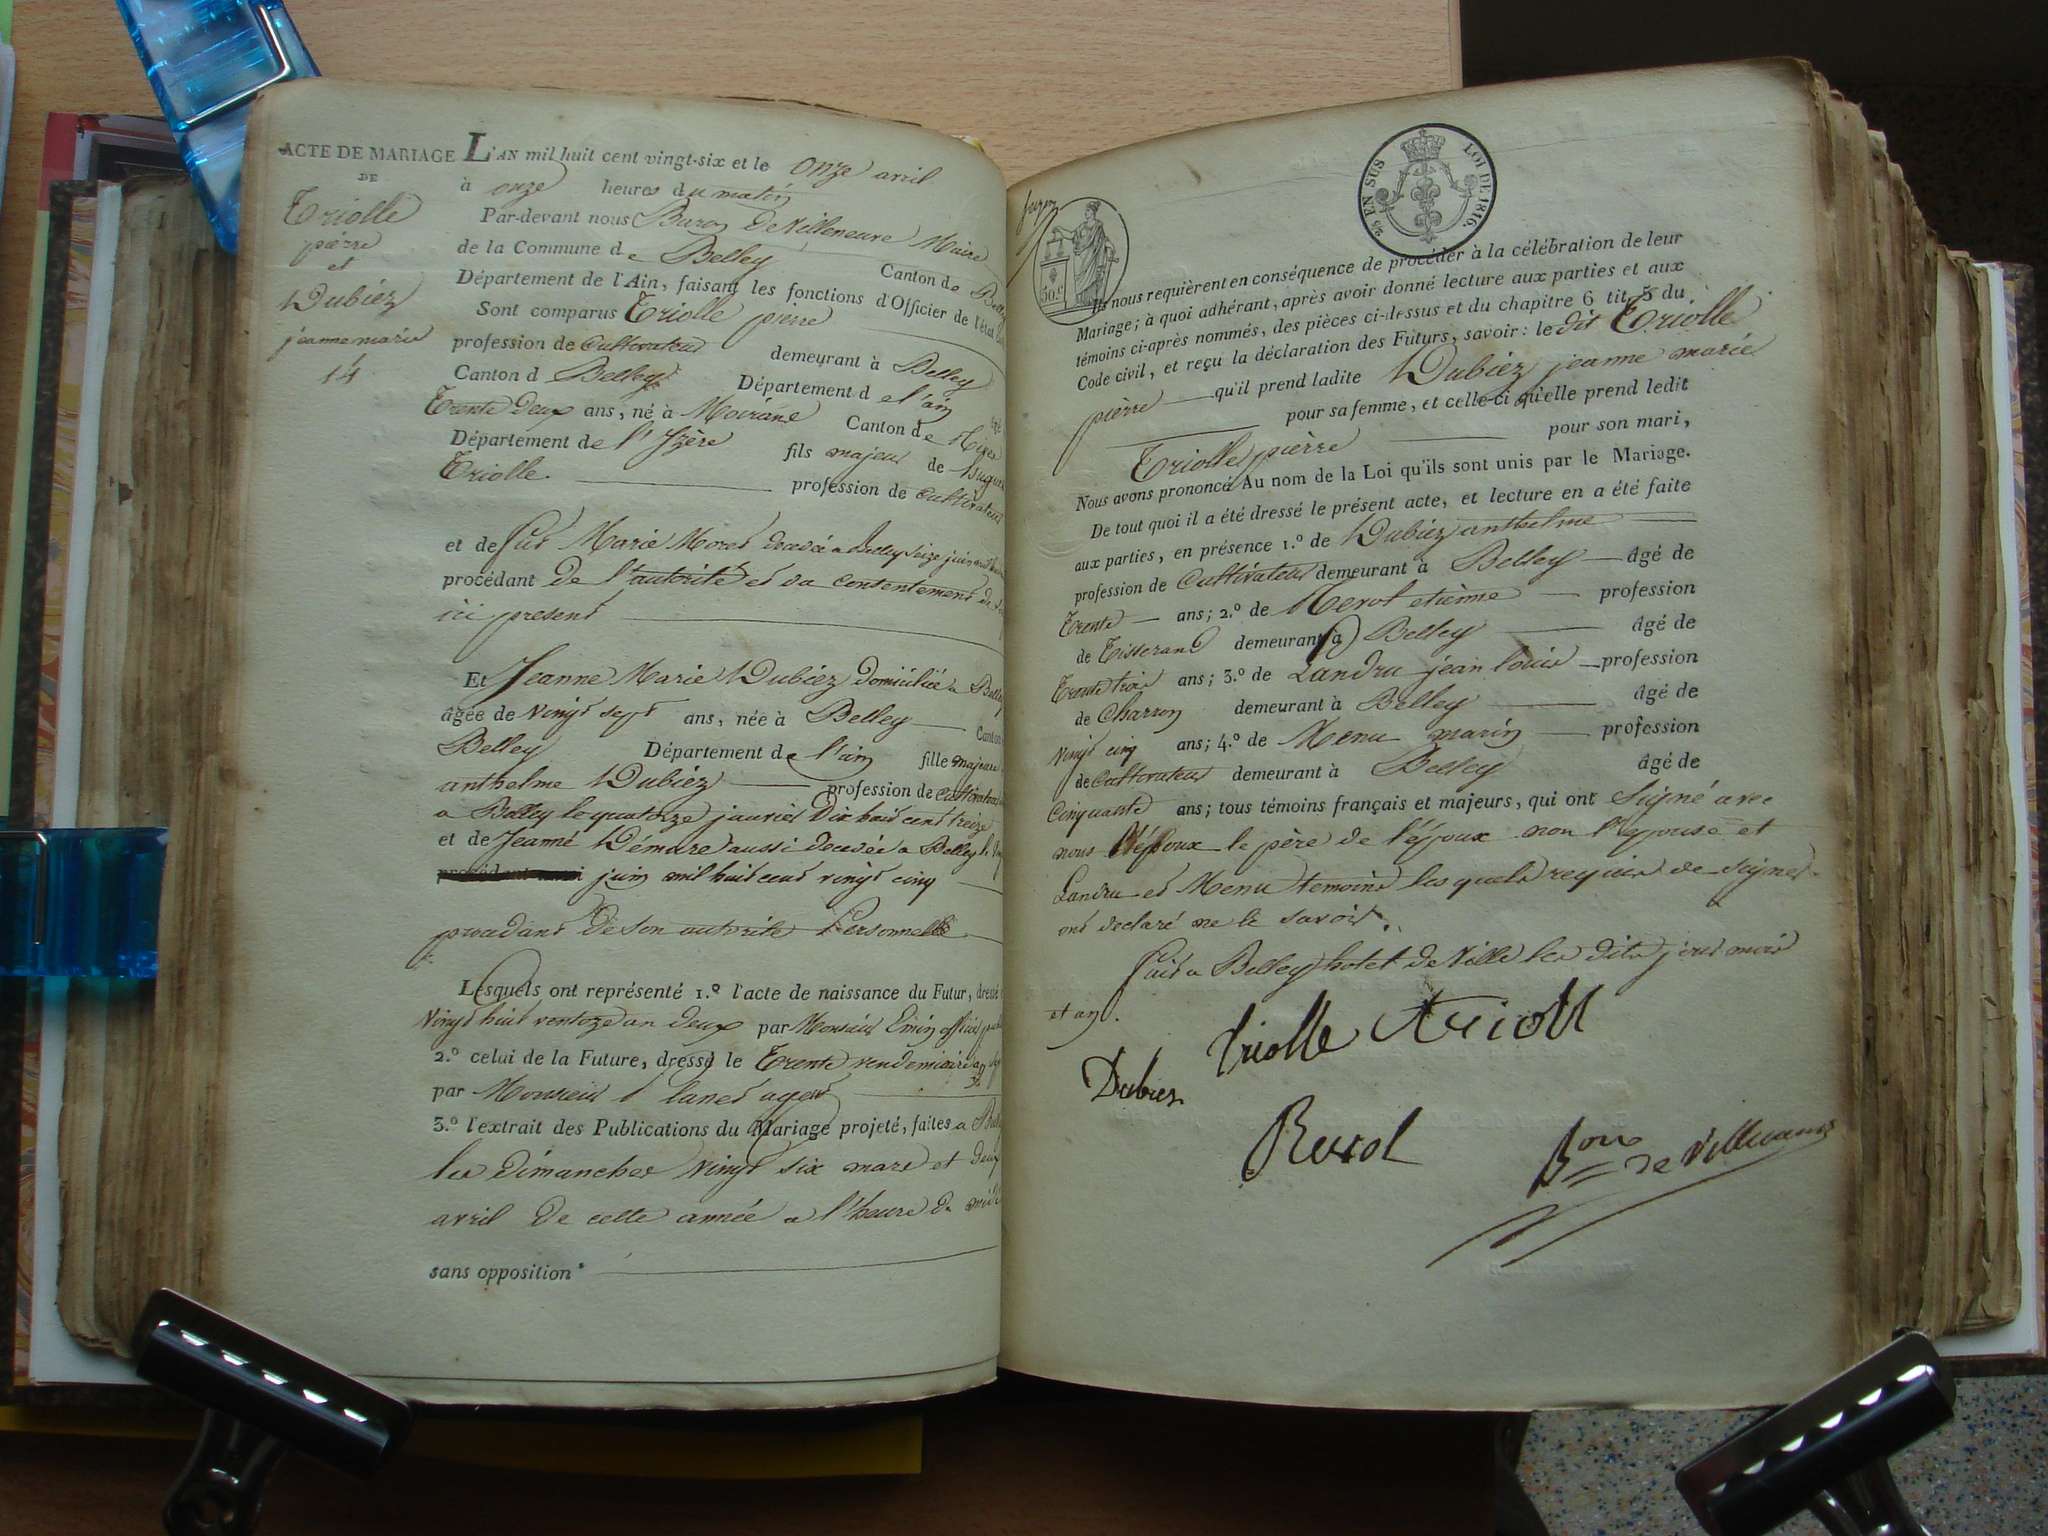 ACTE DE MARIAGE
DE
Triolle
pièrre
et
Dubiez
jeanne marie
14
L'AN mil huit cent vingt-six et le onze avril
à onze heures du matin
Par-devant nous Baron De Villeneuve Maire
de la Commune de Belley Canton de Belley
Département de l'Ain, faisant les fonctions d'Officier de l'état
Sont comparus Triolle pierre
profession de Cultivateur demeurant à Belley
Canton d Belley Département de l'ain
Trente Deux ans, né à Moirane Canton de
Département de l'Izère fils majeur de
Triolle profession de Cultivateur
et de Marie decedée a Belley seize juin
procédant de l'autorité et du contentement de
ici present
Et Jeanne Marie Dubiez domiciliée a Belley
âgée de vingt sept ans, née à Belley Canton
Belley Département de l'ain fille majeure
anthelme Dubiez profession de Cultivateur
a Belley le quatorze janvier Dix huit cent treize
et de Jeanne Démare aussi decedée a Belley le
juin mil huit cent vingt cinq
procedant de son autorité Personnelle
Lesquels ont représenté 1.º l'acte de naissance du Futur, dressé
Vingt huit ventoze an deux par Monsieur officier
2.º celui de la Future, dressé le Trente vendemiaire an
par Monsieur agent
3.º l'extrait des Publications du Mariage projeté, faites a
les dimanches vingt six mars et deux
avril de cette année a l'heure de midi
sans opposition
2/10 EN SUS LOI DE 1816.
50.c
Ils nous requièrent en conséquence de procéder à la célébration de leur
Mariage; à quoi adhérant, après avoir donné lecture aux parties et aux
témoins ci-après nommés, des pièces ci-dessus et du chapitre 6 tit. 5 du
Code civil, et reçu la déclaration des Futurs, savoir: le dit Triolle
pièrre qu'il prend ladite Dubiez jeanne marie
pour sa femme, et celle-ci qu'elle prend ledit
Triolle pièrre pour son mari,
Nous avons prononcé Au nom de la Loi qu'ils sont unis par le Mariage.
De tout quoi il a été dressé le présent acte, et lecture en a été faite
aux parties, en présence 1.º de Dubiez anthelme
profession de Cultivateur demeurant à Belley âgé de
Trente ans; 2.º de etienne profession
de Tisserand demeurant à Belley âgé de
Trente trois ans; 3.º de Landru jean louis profession
de Charron demeurant à Belley âgé de
vingt cinq ans; 4.º de Menu marin profession
de Cultivateur demeurant à Belley âgé de
Cinquante ans; tous témoins français et majeurs, qui ont signé avec
nous l'époux le père de l'époux non l'epouse et
Landru et Menu temoins les quels requis de signer
ont declaré ne le savoir.
fait a Belley hotel de Ville les dits jour mois
et an.
Triolle Triolle
Dubiez
Bon de Villeneuve